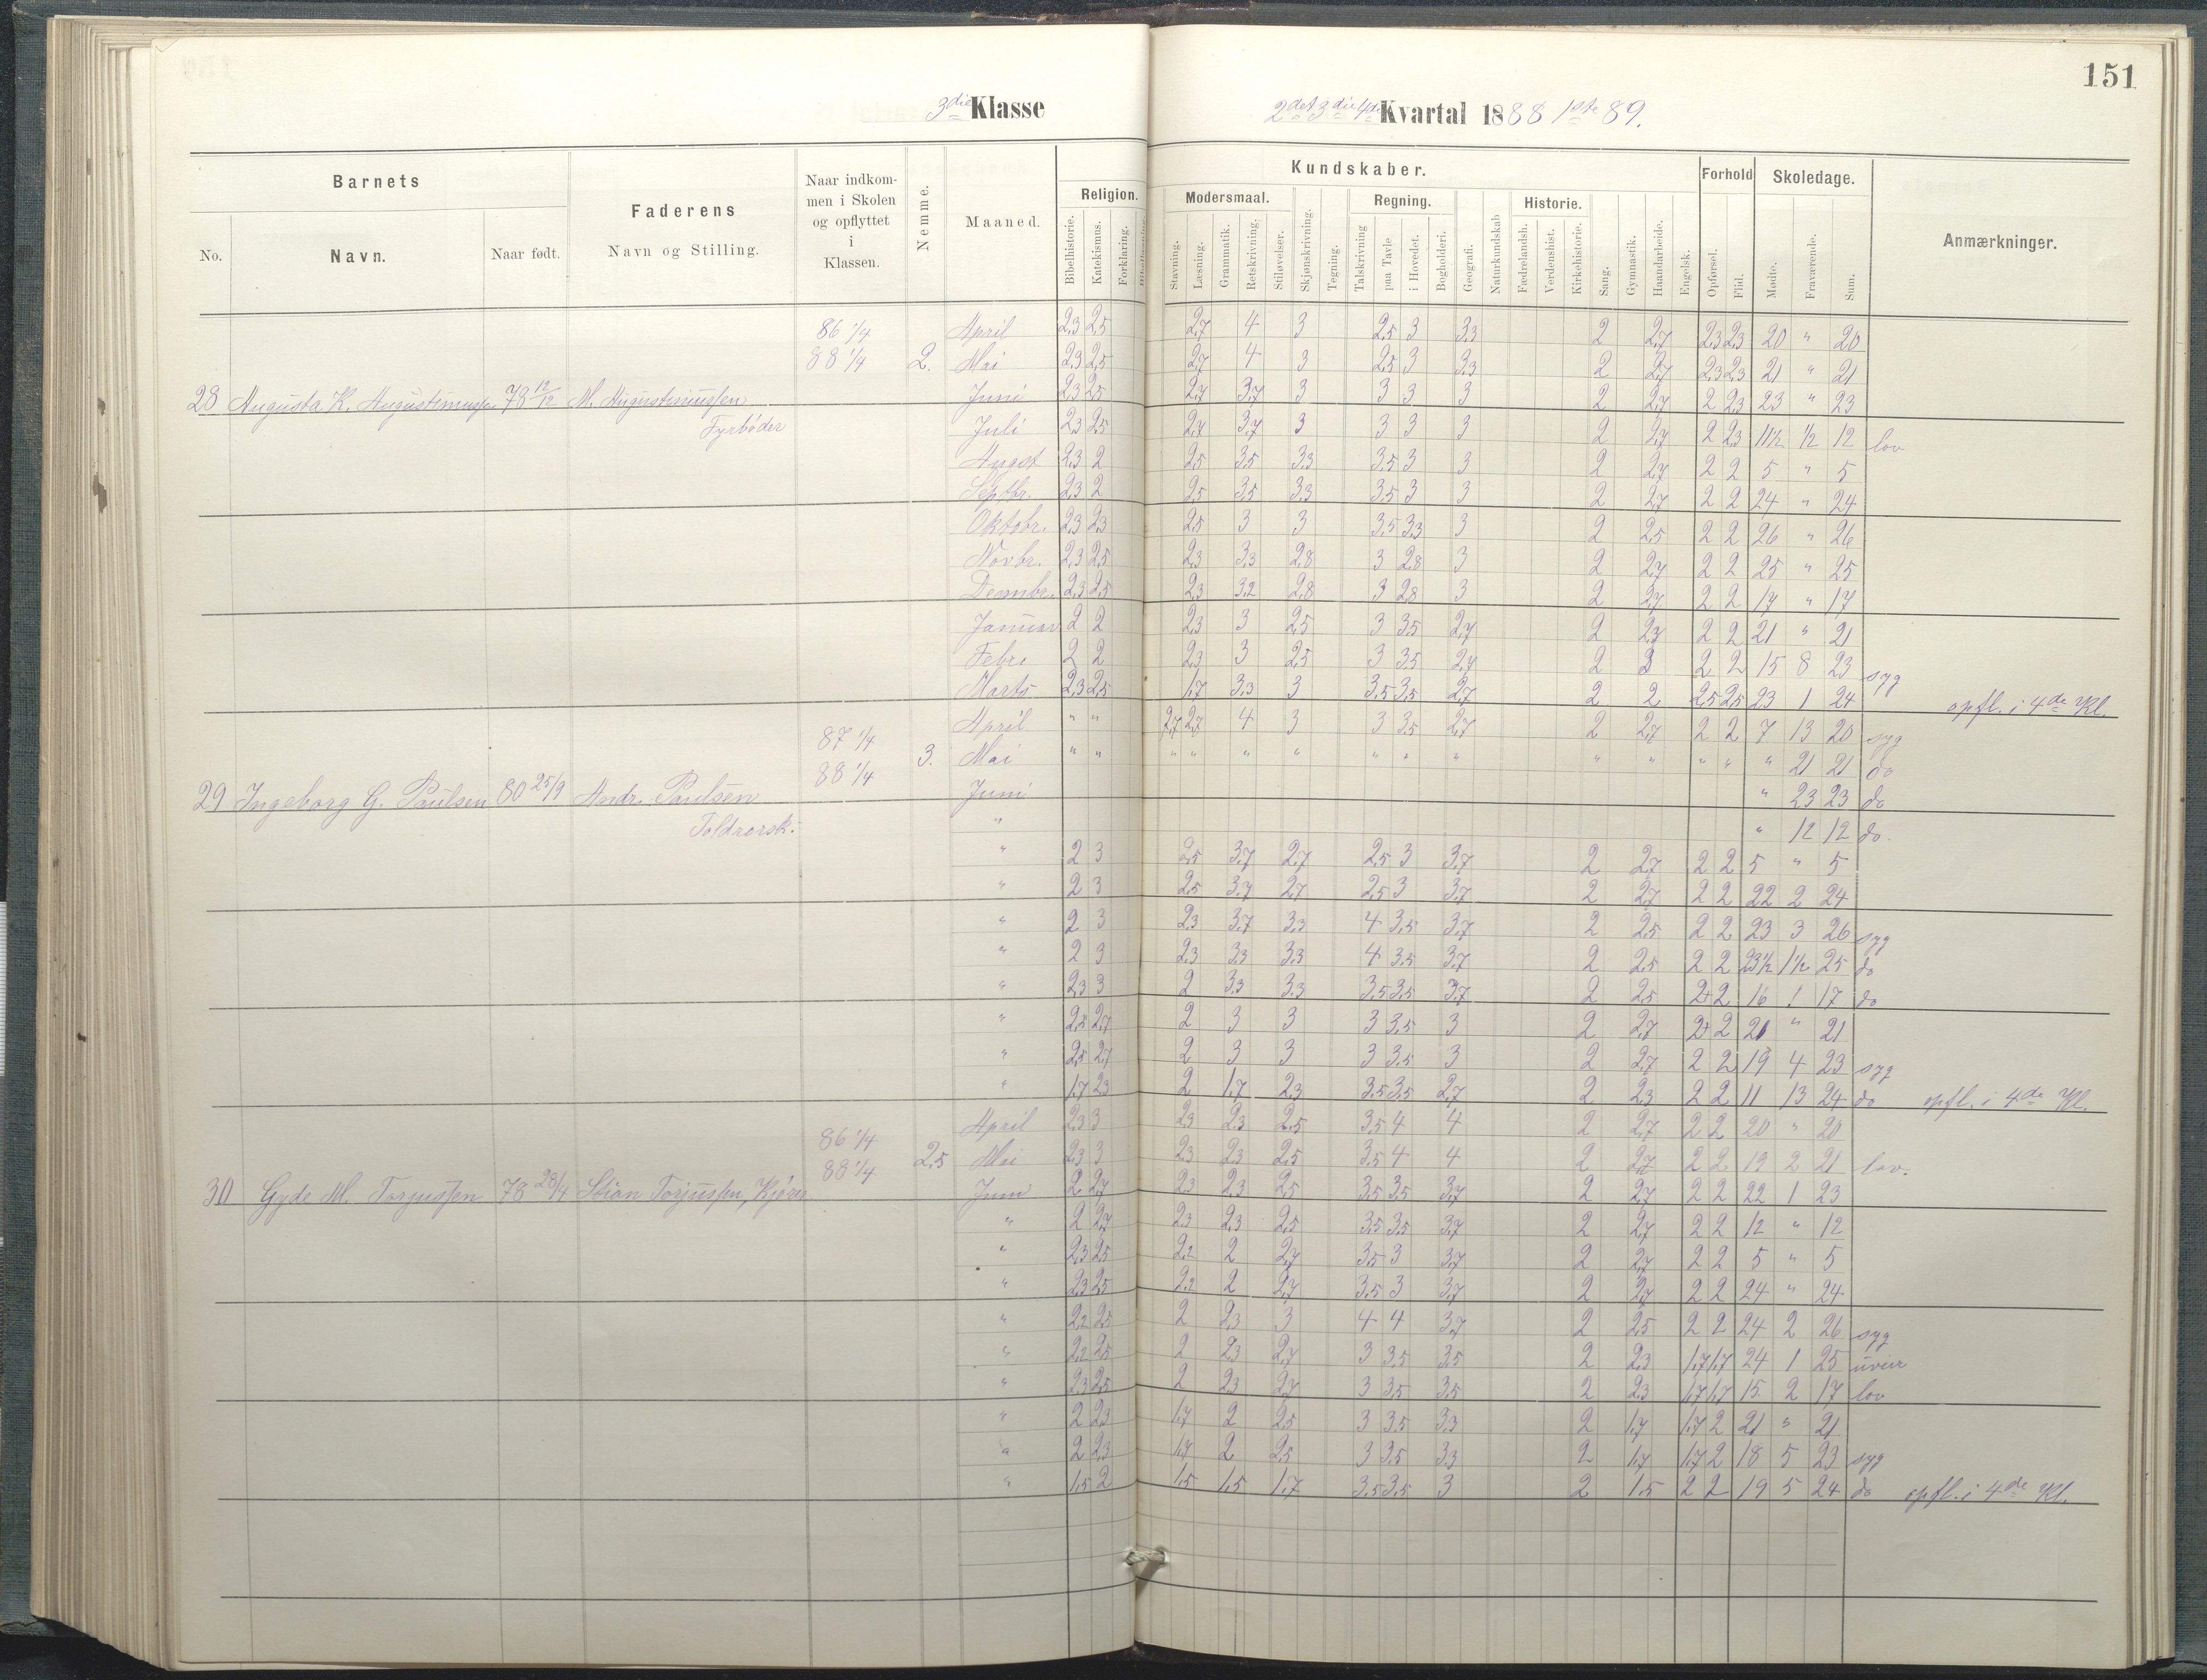 151
3die Klasse
2det 3die 4de Kvartal 1888 1ste 89.
Barnets
Faderens
Naar indkommen i Skolen og opflyttet i Klassen.
Nemme.
Maaned.
Religion.
Kundskaber.
Forhold
Skoledage.
Anmærkninger.
Modersmaal.
Regning.
Historie.
No.
Navn.
Naar født.
Navn og Stilling.
Bibelhistorie.
Katekismus.
Forklaring.
Stavning.
Læsning.
Grammatik.
Retskrivning.
Stiløvelser.
Skjønskrivning.
Tegning.
Talskrivning
paa Tavle
i Hovedet.
Bogholderi.
Geografi.
Naturkundskab
Fædrelandsh.
Verdenshist.
Kirkehistorie.
Sang.
Gymnastik.
Haandarbeide.
Engelsk.
Opførsel.
Flid.
Møite.
Fraværende.
Sum.
86 1/4 April 2,3 2,5 2,7 4 3 2,5 3 3,3 2 2,7 2,3 2,3 20 " 20
88 1/4 2. Mai 2,3 2,5 2,7 4 3 2,5 3 3,3 2 2,7 2,3 2,3 21 " 21
28 Augusta K. Augustinussen 78 12/12 M. Augustinussen Juni 2,3 2,5 2,7 3,7 3 3 3 3 2 2,7 2 2,3 23 " 23
Fyrbøder Juli 2,3 2,5 2,7 3,7 3 3 3 3 2 2,7 2 2,3 11 1/2 1/2 12 lov
Augst 2,3 2 2,5 3,5 3,3 3,5 3 3 2 2,7 2 2 5 " 5
Septbr. 2,3 2 2,5 3,5 3,3 3,5 3 3 2 2,7 2 2 24 " 24
Oktobr. 2,3 2,3 2,5 3 3 3,5 3,3 3 2 2,5 2 2 26 " 26
Novbr. 2,3 2,5 2,3 3,3 2,8 3 2,8 3 2 2,7 2 2 25 " 25
Decmbr. 2,3 2,5 2,3 3,2 2,8 3 2,8 3 2 2,7 2 2 17 " 17
Januar 2 2 2,3 3 2,5 3 3,5 2,7 2 2,3 2 2 21 " 21
Febr 2 2 2,3 3 2,5 3 3,5 2,7 2 3 2 2 15 8 23 syg
Marts 2,3 2,5 1,7 3,3 3 3,5 3,5 2,7 2 2 2,5 2,5 23 1 24 opfl. i 4de Kl.
87 1/4 April " " 2,7 2,7 4 3 3 3,5 2,7 2 2,7 2 2 7 13 20 syg
88 1/4 3. Mai " " " " " " " " " " " " " " 21 21 do
29 Ingeborg G. Paulsen 80 25/9 Andr. Paulsen Juni " 23 23 do
Toldrorsk. " " 12 12 do.
" 2 3 2,5 3,7 2,7 2,5 3 3,7 2 2,7 2 2 5 " 5
" 2 3 2,5 3,7 2,7 2,5 3 3,7 2 2,7 2 2 22 2 24
" 2 3 2,3 3,7 3,3 4 3,5 3,7 2 2,5 2 2 23 3 26 syg
" 2 3 2,3 3,3 3,3 4 3,5 3,7 2 2,5 2 2 23 1/2 1 1/2 25 do
" 2,3 3 2 3,3 3,3 3,5 3,5 3,7 2 2,5 2+ 2 16 1 17 do
" 2,5 2,7 2 3 3 3 3,5 3 2 2,7 2+ 2 21 " 21
" 2,5 2,7 2 3 3 3 3,5 3 2 2,7 2 2 19 4 23 syg
" 1,7 2,3 2 1,7 2,3 3,5 3,5 2,7 2 2,3 2 2 11 13 24 do opfl. i 4de Kl.
86 1/4 April 2,3 3 2,3 2,3 2,5 3,5 4 4 2 2,7 2 2 20 " 20
88 1/4 2,5 Mai 2,3 3 2,3 2,3 2,5 3,5 4 4 2 2,7 2 2 19 2 21 lov.
30 Gyde M. Torjussen 78 28/4 Stian Torjussen, Kjører Juni 2 2,7 2,3 2,3 2,5 3,5 3,5 3,7 2 2,7 2 2 22 1 23
" 2 2,7 2,3 2,3 2,5 3,5 3,5 3,7 2 2,7 2 2 12 " 12
" 2,3 2,5 2,2 2 2,7 3,5 3 3,7 2 2,7 2 2 5 " 5
" 2,3 2,5 2,2 2 2,7 3,5 3 3,7 2 2,7 2 2 24 " 24
" 2,2 2,5 2 2,3 3 4 4 3,7 2 2,5 2 2 24 2 26 syg
" 2,2 2,5 2 2,3 2,7 3 3,5 3,5 2 2,3 1,7 1,7 24 1 25 uveir
" 2,3 2,5 2 2,3 2,7 3 3,5 3,5 2 2,3 1,7 1,7 15 2 17 lov
" 2 2,3 1,7 2 2,5 3 3,5 3,3 2 1,7 1,7 2 21 " 21
" 2 2,3 1,7 2 2,5 3 3,5 3,3 2 1,7 1,7 2 18 5 23 syg
" 1,5 2 1,5 1,5 1,7 3,5 3,5 3 2 1,5 2 2 19 5 24 do opfl. i 4de Kl.